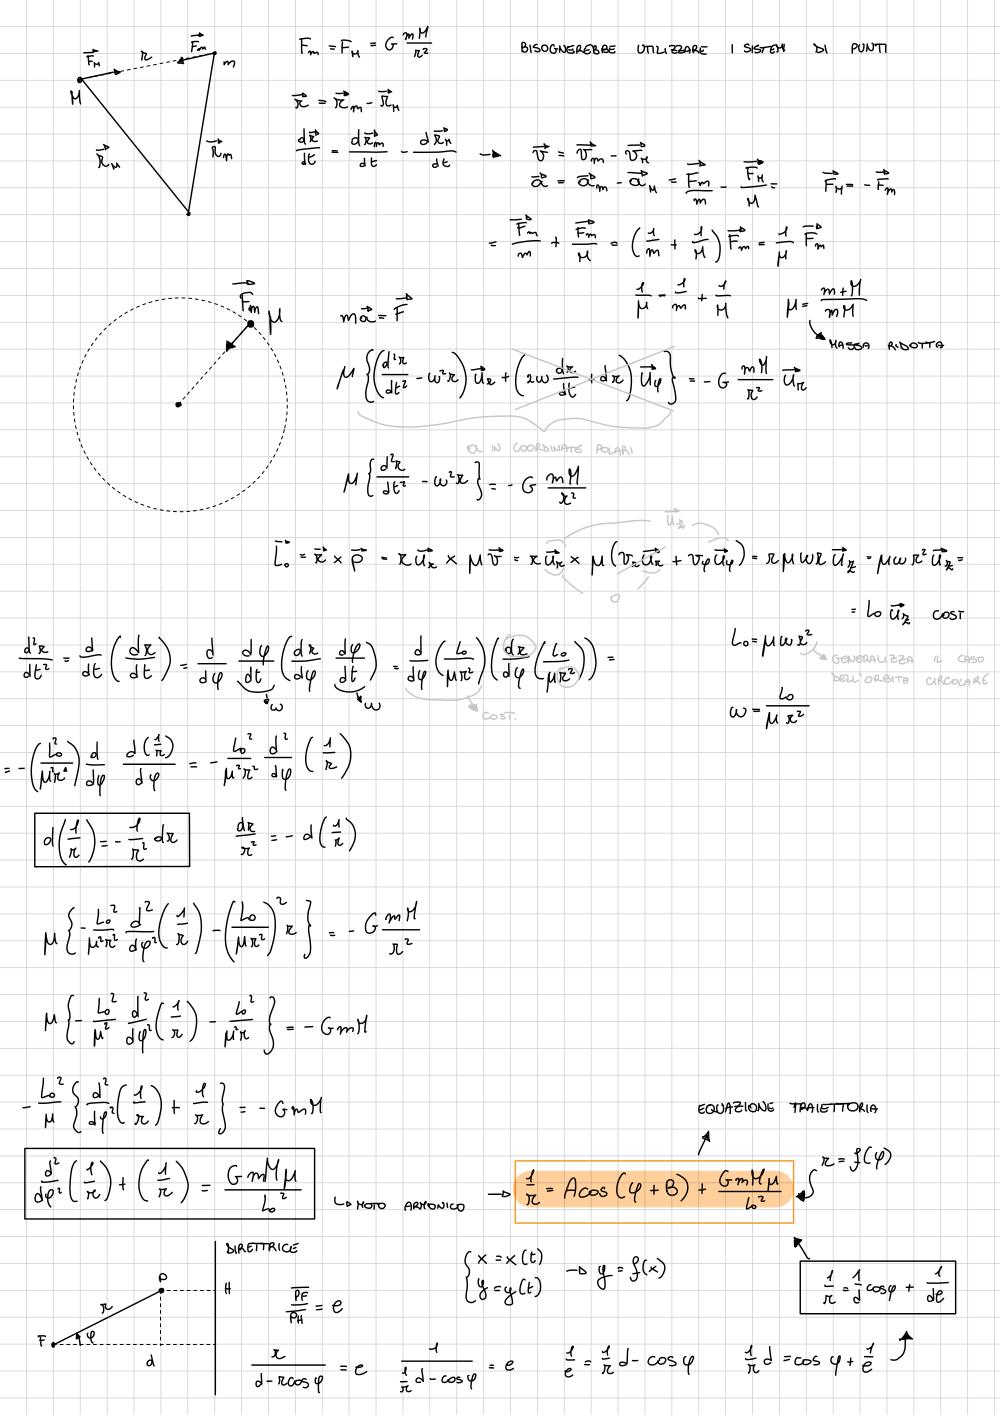 F⃗_M r F⃗_m
M m
r⃗_M r⃗_m
F_m = F_M = G mM/r²
BISOGNEREBBE UTILIZZARE I SISTEMI DI PUNTI
r⃗ = r⃗_m - r⃗_M
dr⃗/dt = dr⃗_m/dt - dr⃗_M/dt → v⃗ = v⃗_m - v⃗_M
a⃗ = a⃗_m - a⃗_M = F⃗_m/m - F⃗_M/M = F⃗_M = - F⃗_m
= F⃗_m/m + F⃗_m/M = (1/m + 1/M) F⃗_m = 1/μ F⃗_m
1/μ = 1/m + 1/M μ = m+M/mM
MASSA RIDOTTA
F⃗_m μ
ma⃗ = F⃗
μ {(d²r/dt² - ω²r) u⃗_r + (2ω dr/dt + dr) u⃗_φ} = - G mM/r² u⃗_r
a IN COORDINATE POLARI
μ {d²r/dt² - ω²r} = - G mM/r²
u⃗_z
L⃗₀ = r⃗ × p⃗ = r u⃗_r × μ v⃗ = r u⃗_r × μ (v_r u⃗_r + v_φ u⃗_φ) = r μ ω r u⃗_z = μ ω r² u⃗_z =
0
= L₀ u⃗_z COST
L₀ = μ ω r²
GENERALIZZA IL CASO
DELL'ORBITA CIRCOLARE
d²r/dt² = d/dt (dr/dt) = d/dφ dφ/dt (dr/dφ dφ/dt) = d/dφ (L₀/μr²) (dr/dφ (L₀/μr²)) =
ω ω COST.
ω = L₀/μr²
= - (L₀²/μ²r⁴) d/dφ d(1/r)/dφ = - L₀²/μ²r² d²/dφ (1/r)
d(1/r) = - 1/r² dr dr/r² = - d(1/r)
μ {- L₀²/μ²r² d²/dφ² (1/r) - (L₀/μr²)² r} = - G mM/r²
μ {- L₀²/μ² d²/dφ² (1/r) - L₀²/μ²r} = - GmM
- L₀²/μ {d²/dφ² (1/r) + 1/r} = - GmM
EQUAZIONE TRAIETTORIA
d²/dφ² (1/r) + (1/r) = GmMμ/L₀² ↳ MOTO ARMONICO → 1/r = A cos (φ + B) + GmMμ/L₀² r = f(φ)
DIRETTRICE
P H
r
F φ
d
PF/PH = e
{x = x(t)
y = y(t) → y = f(x)
1/r = 1/d cosφ + 1/de
r/d - r cosφ = e 1/(1/r d - cosφ) = e 1/e = 1/r d - cos φ 1/r d = cos φ + 1/e